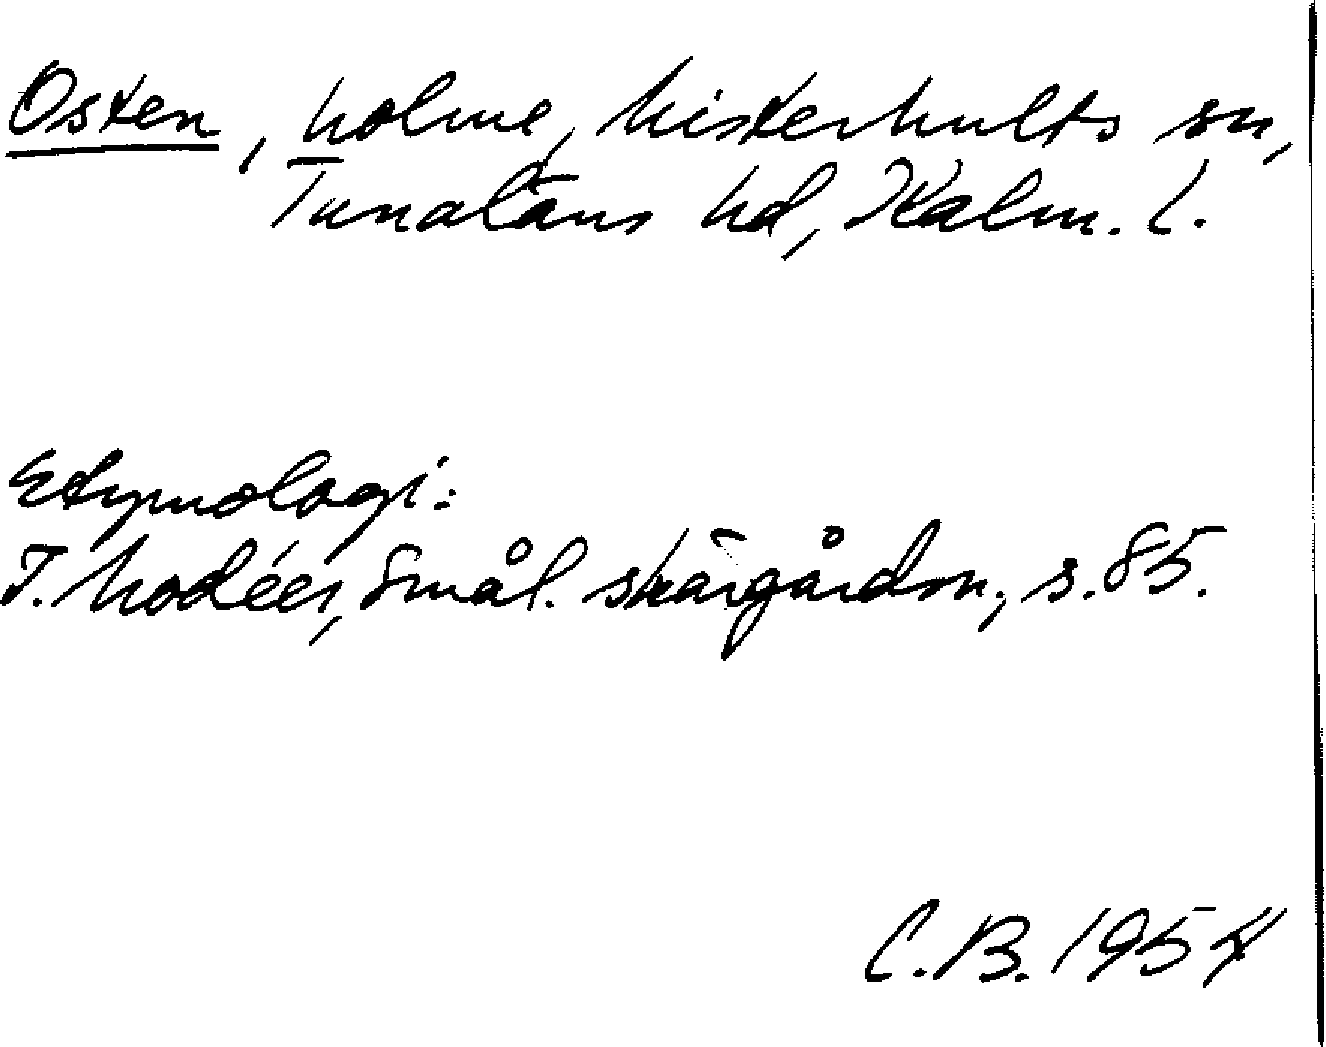 Osten, holme, Misterhults sn,
Tunaläns hd, Kalm. l.
Etymologi:
T. Modéer, Smål. skärgårdsn., s. 85.
C.B. 1954